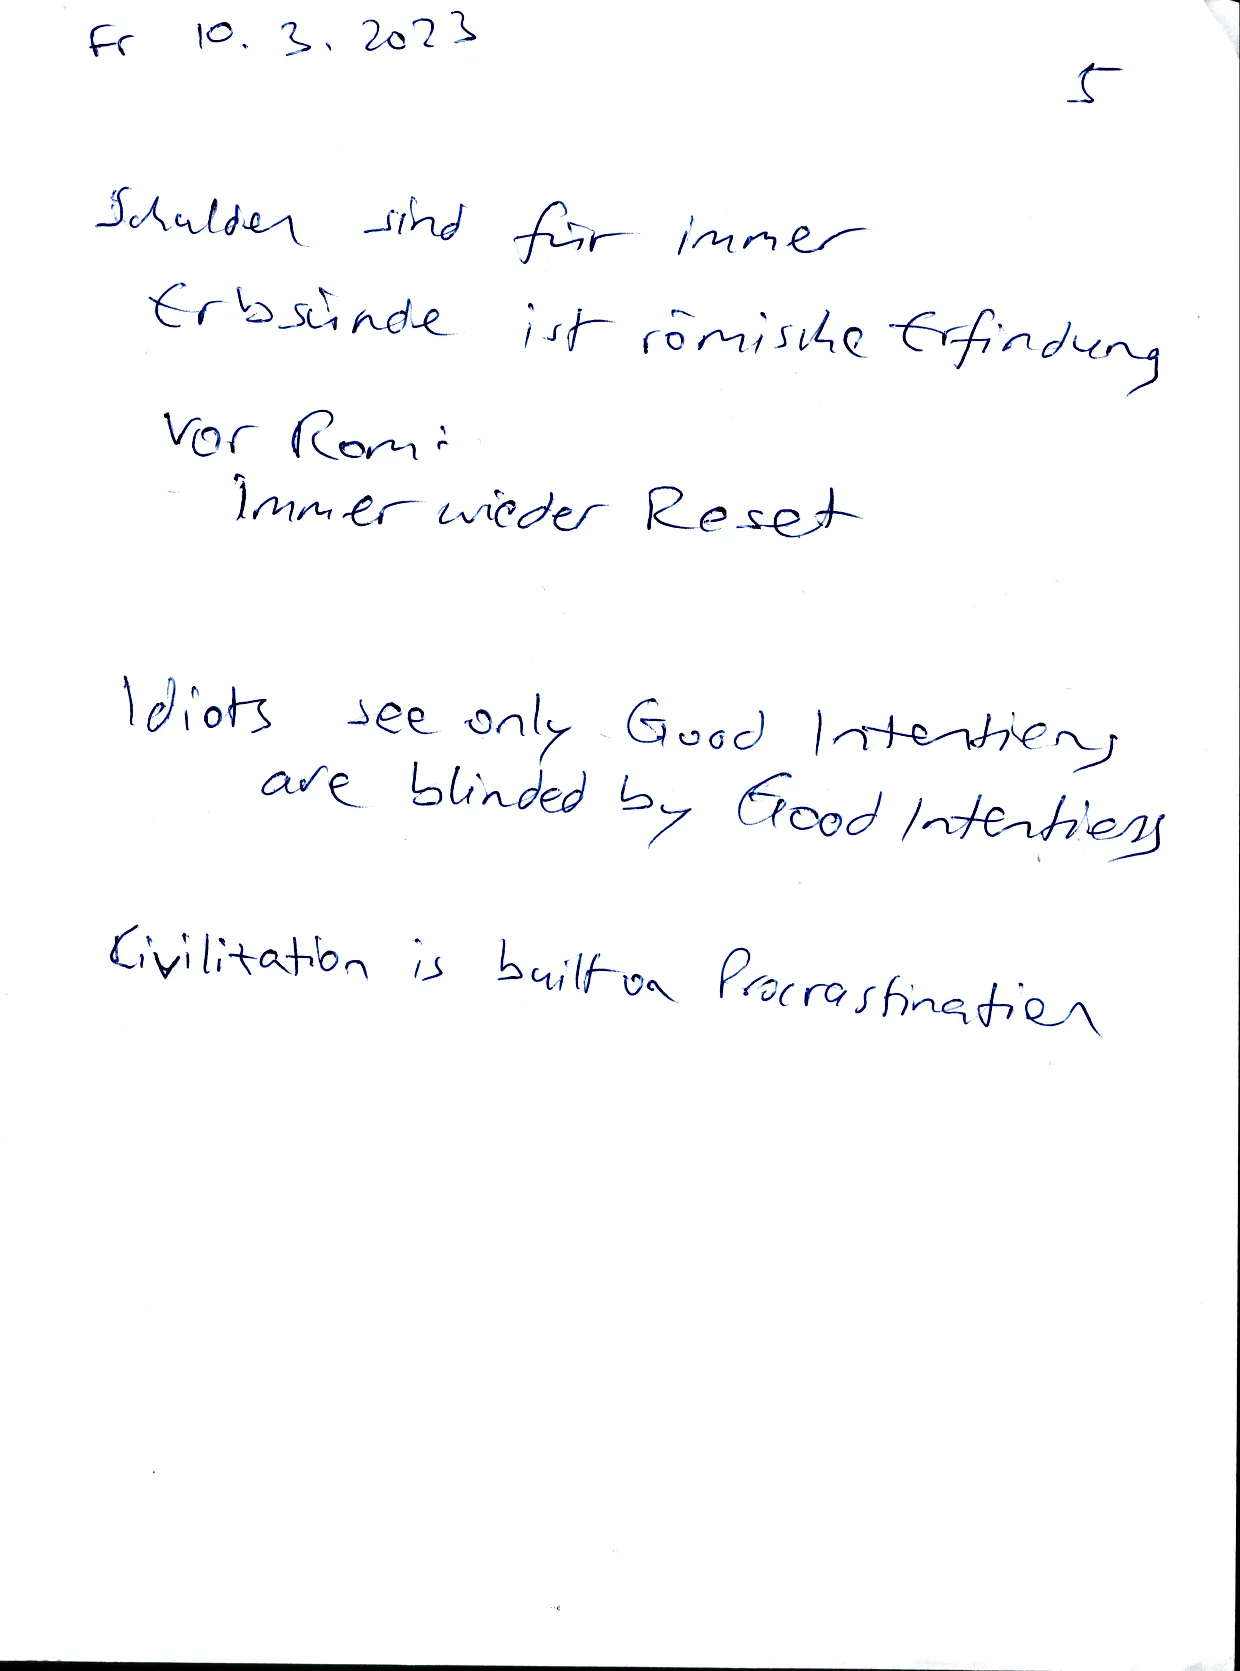 Fr 10. 3. 2023
5
Schulden sind für immer
Erbsünde ist römische Erfindung
Vor Rom:
Immer wieder Reset
Idiots see only Good Intentions
are blinded by Good Intentions
Civilitation is built on Procrastination